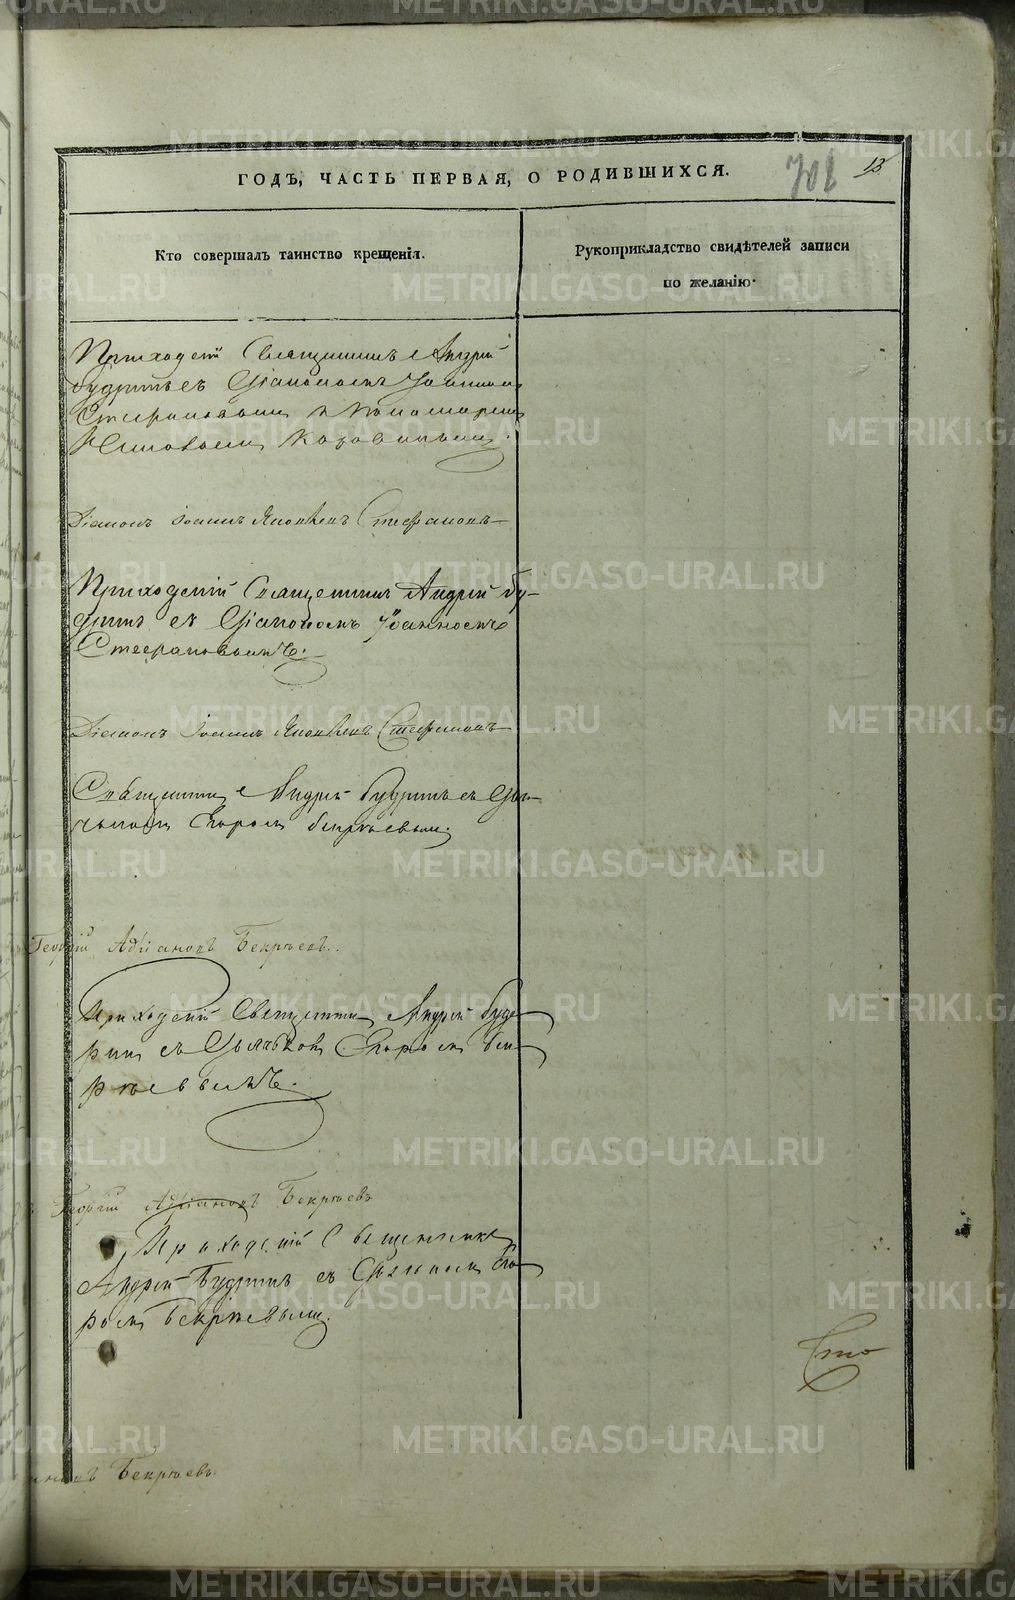 ГОДЪ, ЧАСТЬ ПЕРВАЯ, О РОДИВШИХСЯ.
701 13
Кто совершалъ таинство крещенія.
Рукоприкладство свидѣтелей записи
по желанію.
Приходскій Священникъ Андрей
Будринъ съ Діакономъ Іоанномъ
Стефановымъ и Пономаремъ
Діаконъ Іоаннъ Яковлевъ Стефановъ
Приходскій Священникъ Андрей Бу-
дринъ съ Діакономъ Іоанномъ
Стефановымъ.
Діаконъ Іоаннъ Яковлевъ Стефановъ
Священникъ Андрей Будринъ съ Дья-
чькомъ Егоромъ Бекрѣевымъ.
Георгій Адріановъ Бекрѣевъ.
Приходскій Священникъ Андрей Буд-
ринъ съ Дьячькомъ Егоромъ Бек-
рѣевымъ.
Георгій Адріановъ Бекрѣевъ
Приходскій Священникъ
Андрей Будринъ съ Дьячькомъ Его-
ромъ Бекрѣевымъ.
Сто
Бекрѣевъ.
METRIKI.GASO-URAL.RU